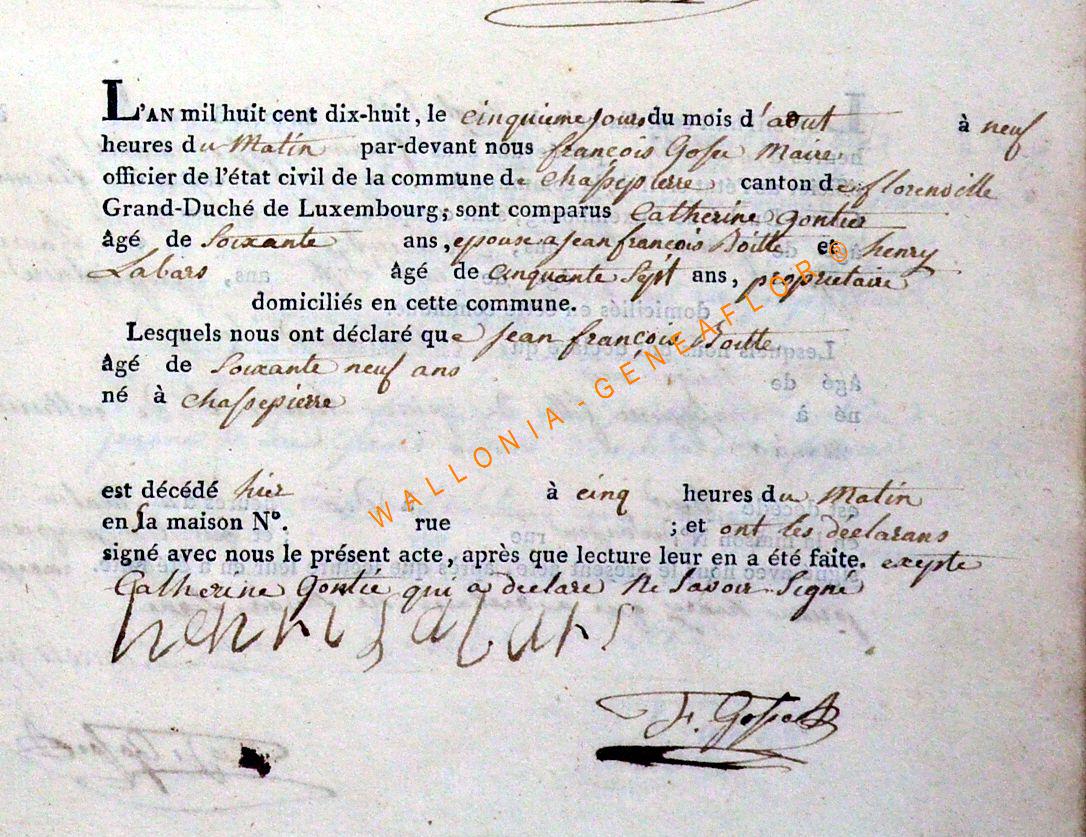 L'AN mil huit cent dix-huit, le cinquieme jour du mois d'aout à neuf
heures du Matin par-devant nous françois Gosse Maire
officier de l'état civil de la commune de Chassepierre canton de florenville
Grand-Duché de Luxembourg; sont comparus Catherine Gontier
âgé de Soixante ans, epouse a jean françois Boitte et henry
Labars âgé de Cinquante Sept ans, proprietaire
domiciliés en cette commune.
Lesquels nous ont déclaré que jean françois Boitte
âgé de Soixante neuf ans
né à Chassepierre
est décédé hier à cinq heures du Matin
en sa maison N°. rue ; et ont les déclarans
signé avec nous le présent acte, après que lecture leur en a été faite. exepte
Catherine Gontie qui a declare Ne Savoir Signe
henri labars
F. Gosse
WALLONIA-GENEAFLOR©